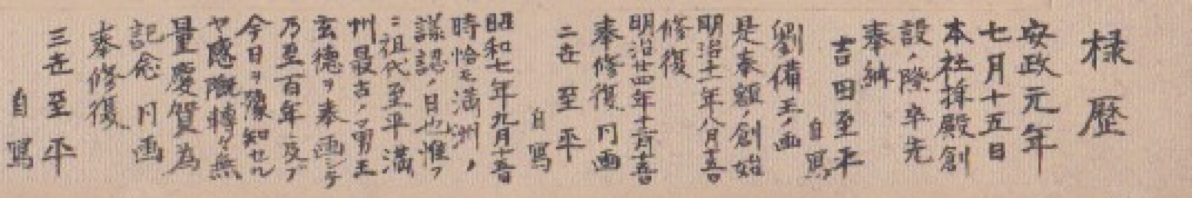 様歴
安政元年
七月十五日
本社拝殿創
設ノ際卒先
奉納
吉田至平
自写
劉備玉ノ画
是奉額ノ創始
明治十一年八月吉
修復
明治廿四年十一月吉
奉修復同画
二世至平
自写
昭和七年九月十五日
時恰モ満洲ノ
議認ノ日也惟フ
ニ祖代至平満
州最古ノ勇王
玄徳ヲ奉画シテ
乃至百年ニ及ブ
今日ヲ豫知セル
ヤ感慨轉々無
量慶賀為
記念同画
奉修復
三世至平
自写